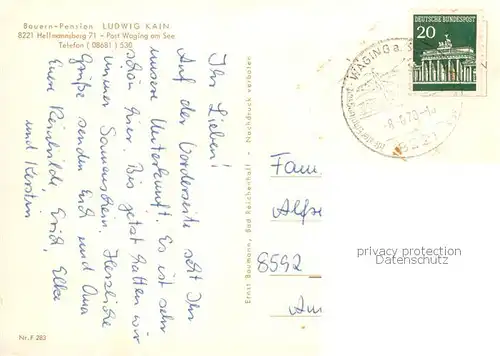 Bauern-Pension LUDWIG KAIN
8221 Hellmannsberg 71 – Post Waging am See
Telefon (08681) 530
Ihr Lieben!
Auf der Vorderseite seht Ihr
unsere Unterkunft. Es ist sehr
schön hier. Bis jetzt hatten wir
immer Sonnenschein. Herzliche
Grüße senden Euch und Oma
Eure Reinhilde, Erich, Elke
und Kerstin
Ernst Baumann, Bad Reichenhall - Nachdruck verboten
Nr. F 283
DEUTSCHE BUNDESPOST
20
WAGING a.
8221
Fam.
Alfre
8592
privacy protection
Datenschutz